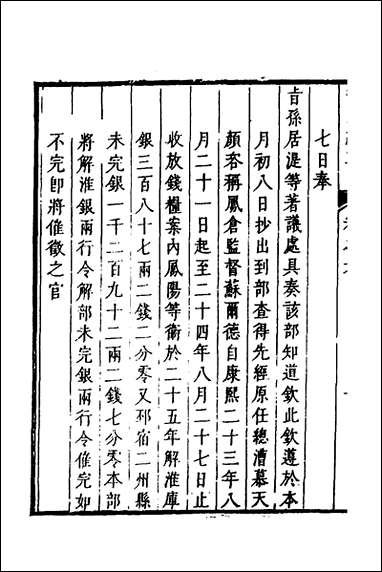 七日奉
旨孫居湜等著議處具奏該部知道欽此欽遵於本
月初八日抄出到部查得先經原任總漕慕天
顏咨稱鳳倉監督蘇爾德自康熙二十三年八
月二十一日起至二十四年八月二十七日止
收放錢糧案內鳳陽等衛於二十五年解淮庫
銀三百八十七兩二錢二分零又邳宿二州縣
未完銀一千二百九十二兩二錢七分零本部
將解淮銀兩行令解部未完銀兩行令催完如
不完即將催徵之官